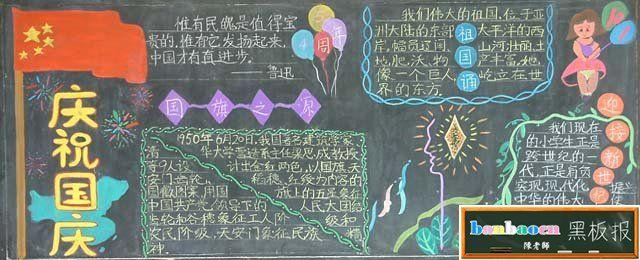 庆祝国庆
惟有民魂是值得宝
贵的,惟有它发扬起来,
中国才有真进步。
——鲁迅
54周年
国旗之原
1950年6月20日,我国著名建筑学家
清华大学营建系主任梁思成教授
等9人设计出金红两色,以国旗、天
安门、齿轮、稻穗、红绶为内容的
国徽图案,用国旗上的五星象征
中国共产党领导下的人民大团结
齿轮和谷穗象征工人阶级和
农民阶级,天安门象征民族精
神。
我们伟大的祖国,位于亚
洲大陆的东部,太平洋的西
岸,幅员辽阔,山河壮丽,土
地肥沃,物产丰富,她
像一个巨人,屹立在世
界的东方
祖国颂
迎接新世纪
我们现在
的小学生正是
跨世纪的一
代,正是肩负
实现现代化
中华的伟大
banbaoen
黑板报
陳老師